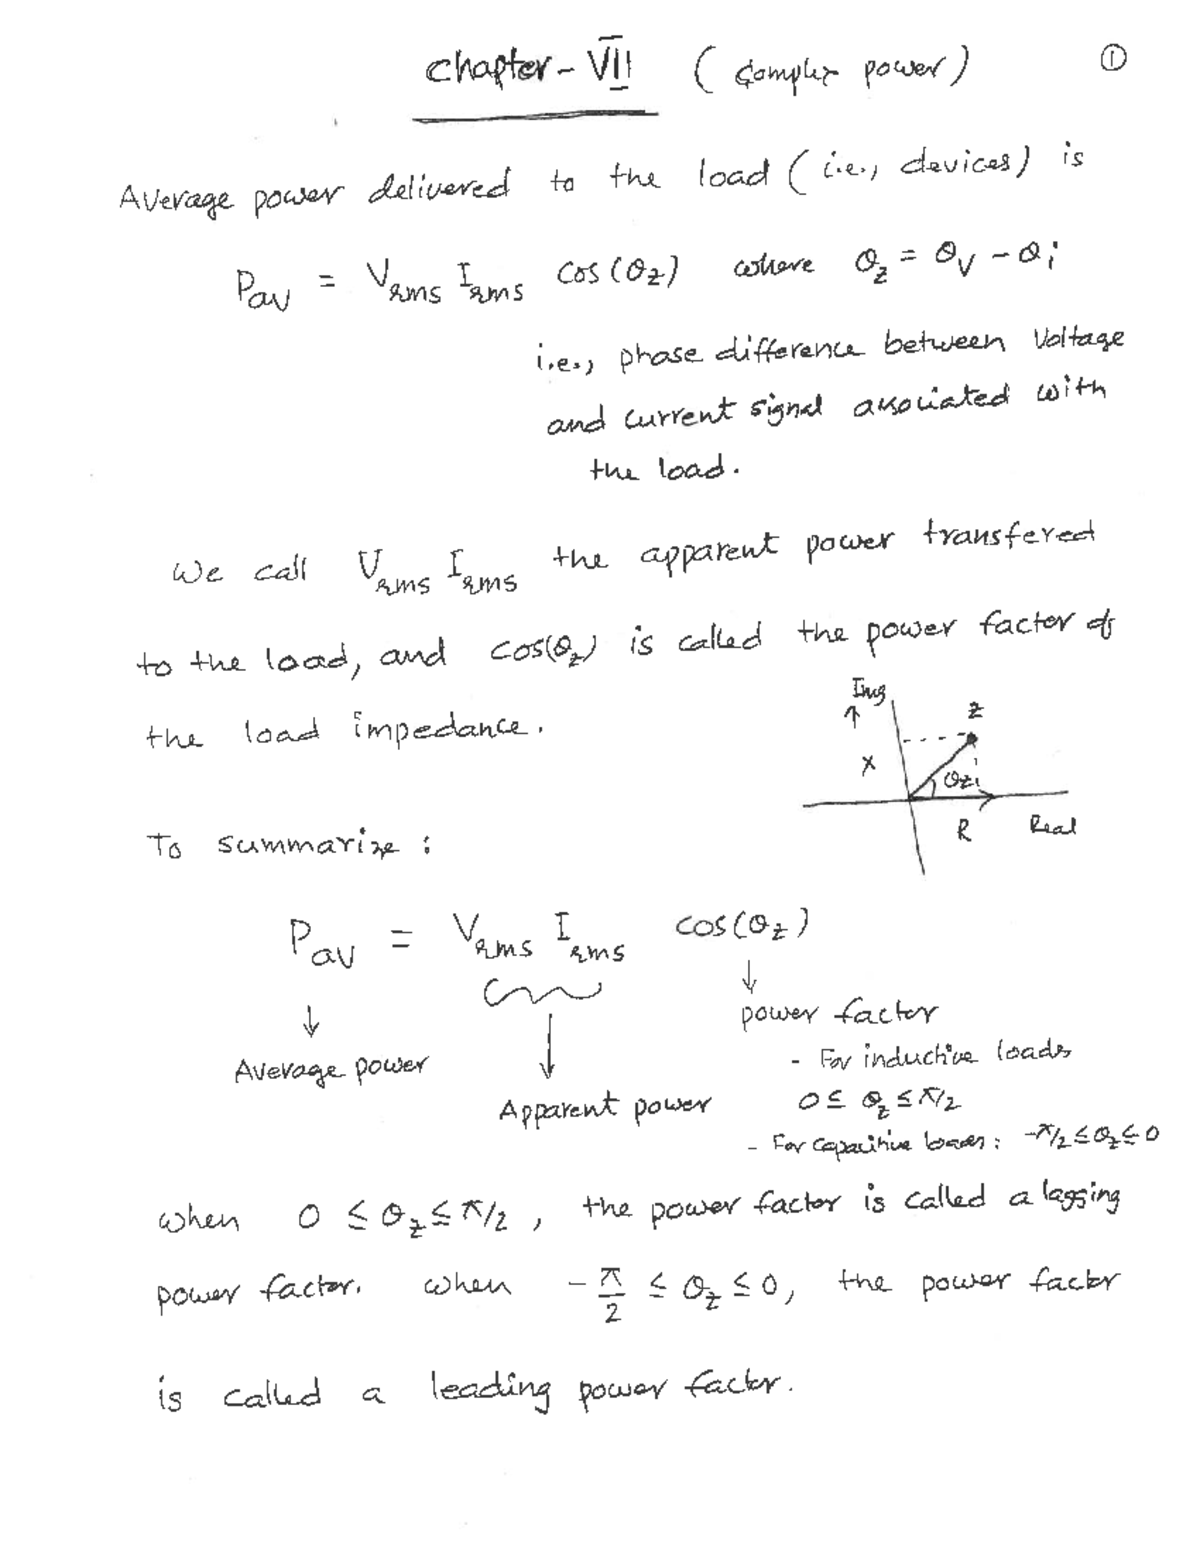 Chapter - VII (Complex power) ①
Average power delivered to the load (i.e., devices) is
Pav = Vrms Irms cos(θz) where θz = θv - θi
i.e., phase difference between Voltage
and current signal associated with
the load.
We call Vrms Irms the apparent power transfered
to the load, and cos(θz) is called the power factor of
the load impedance.
Img
↑
X
z
θz
R
Real
To summarize :
Pav = Vrms Irms cos(θz)
↓ ↓ ↓
power factor
Average power
- For inductive loads
Apparent power
0 ≤ θz ≤ π/2
- For capacitive loads : -π/2 ≤ θz ≤ 0
when 0 ≤ θz ≤ π/2 , the power factor is called a lagging
power factor. when -π/2 ≤ θz ≤ 0, the power factor
is called a leading power factor.